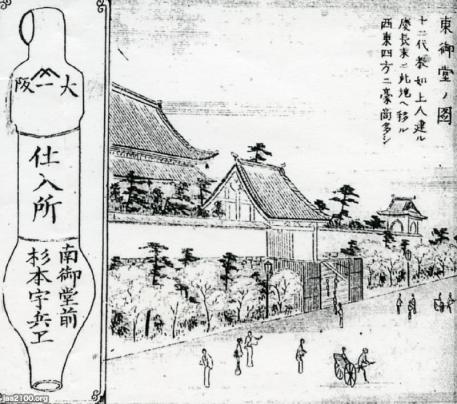 東御堂ノ圖
十二代教如上人建ル
慶長末ニ此地ヘ移ル
西東四方ニ豪商多シ
大一阪
仕入所
南御堂前
杉本宇兵ヱ
jaa2100.org